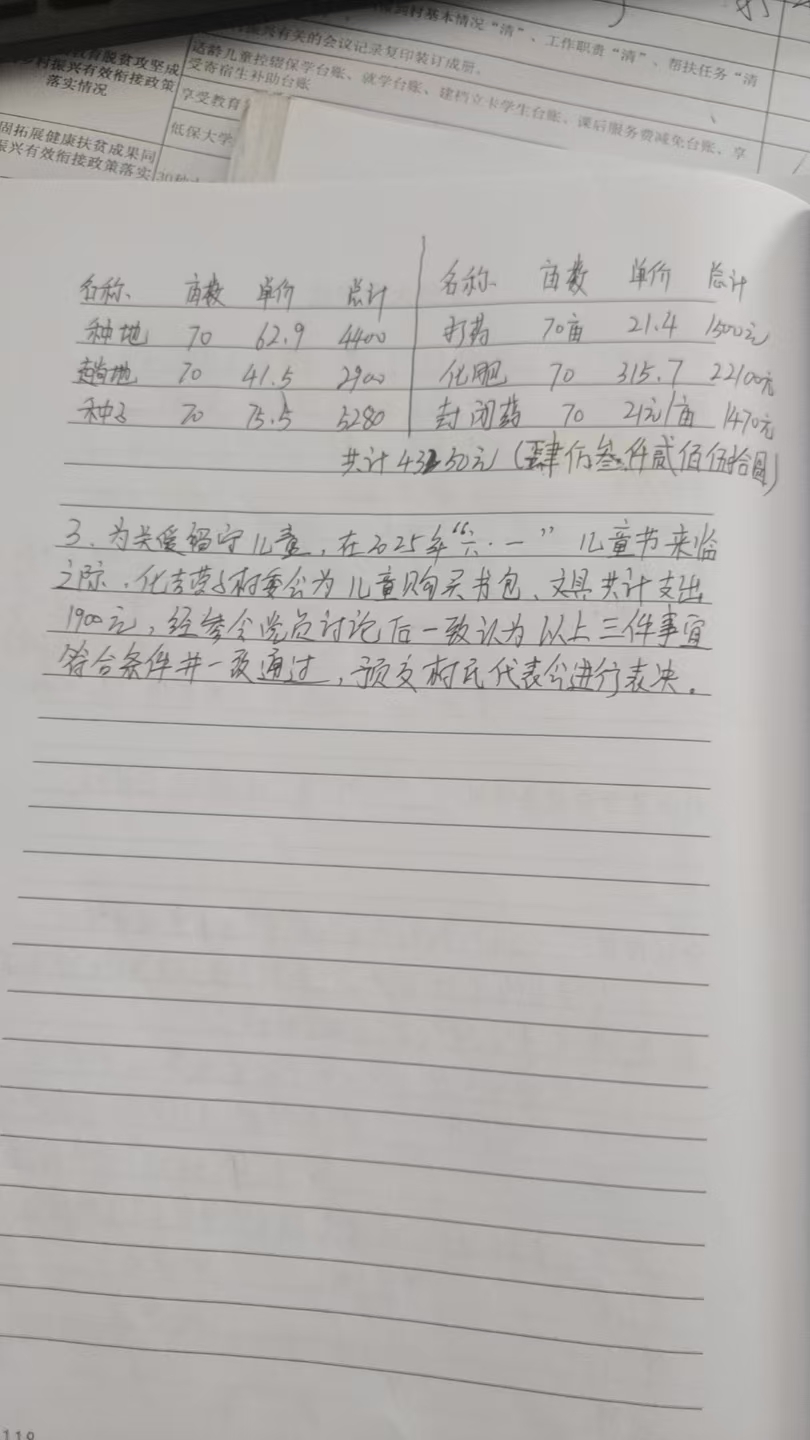 到村基本情况“清”、工作职责“清”、帮扶任务“清
振兴有关的会议记录复印装订成册。
教育脱贫攻坚成
乡村振兴有效衔接政策
落实情况
适龄儿童控辍保学台账、就学台账、建档立卡学生台账、课后服务费减免台账、享
受寄宿生补助台账
享受教育
低保大学
固拓展健康扶贫成果同
振兴有效衔接政策落实
名称、 亩数 单价 总计 名称、 亩数 单价 总计
种地 70 62.9 4400 打药 70亩 21.4 1500元
趟地 70 41.5 2900 化肥 70 315.7 22100元
种子 70 75.5 5280 封闭药 70 21元/亩 1470元
共计43250元(肆仿叁仟贰佰伍拾圆)
3、为关爱留守儿童,在2025年“六·一”儿童节来临
之际,化吉营子村委会为儿童购买书包、文具共计支出
1900元,经参会党员讨论后一致认为以上三件事宜
符合条件并一致通过,预交村民代表会进行表决。
119